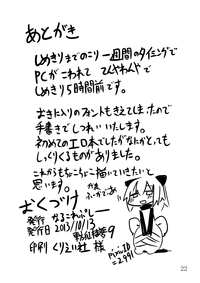 あとがき
しめきりまでのこり一週間のタイミングで
PCがこわれて てんやわんやで
しめきり5時間前です。
おきに入りのフォントもきえてしまったので
手書きでしつれいいたします。
初めてのエロ本でしたがなんとも
しっくりくるものがありました。
これからもちょこちょこ描いていきたいと
思います。
おくづけ
発行 なるこれぷしー
発行日 2013/10/13
印刷 くりえい社 様
Pixiv ID
=2991
22